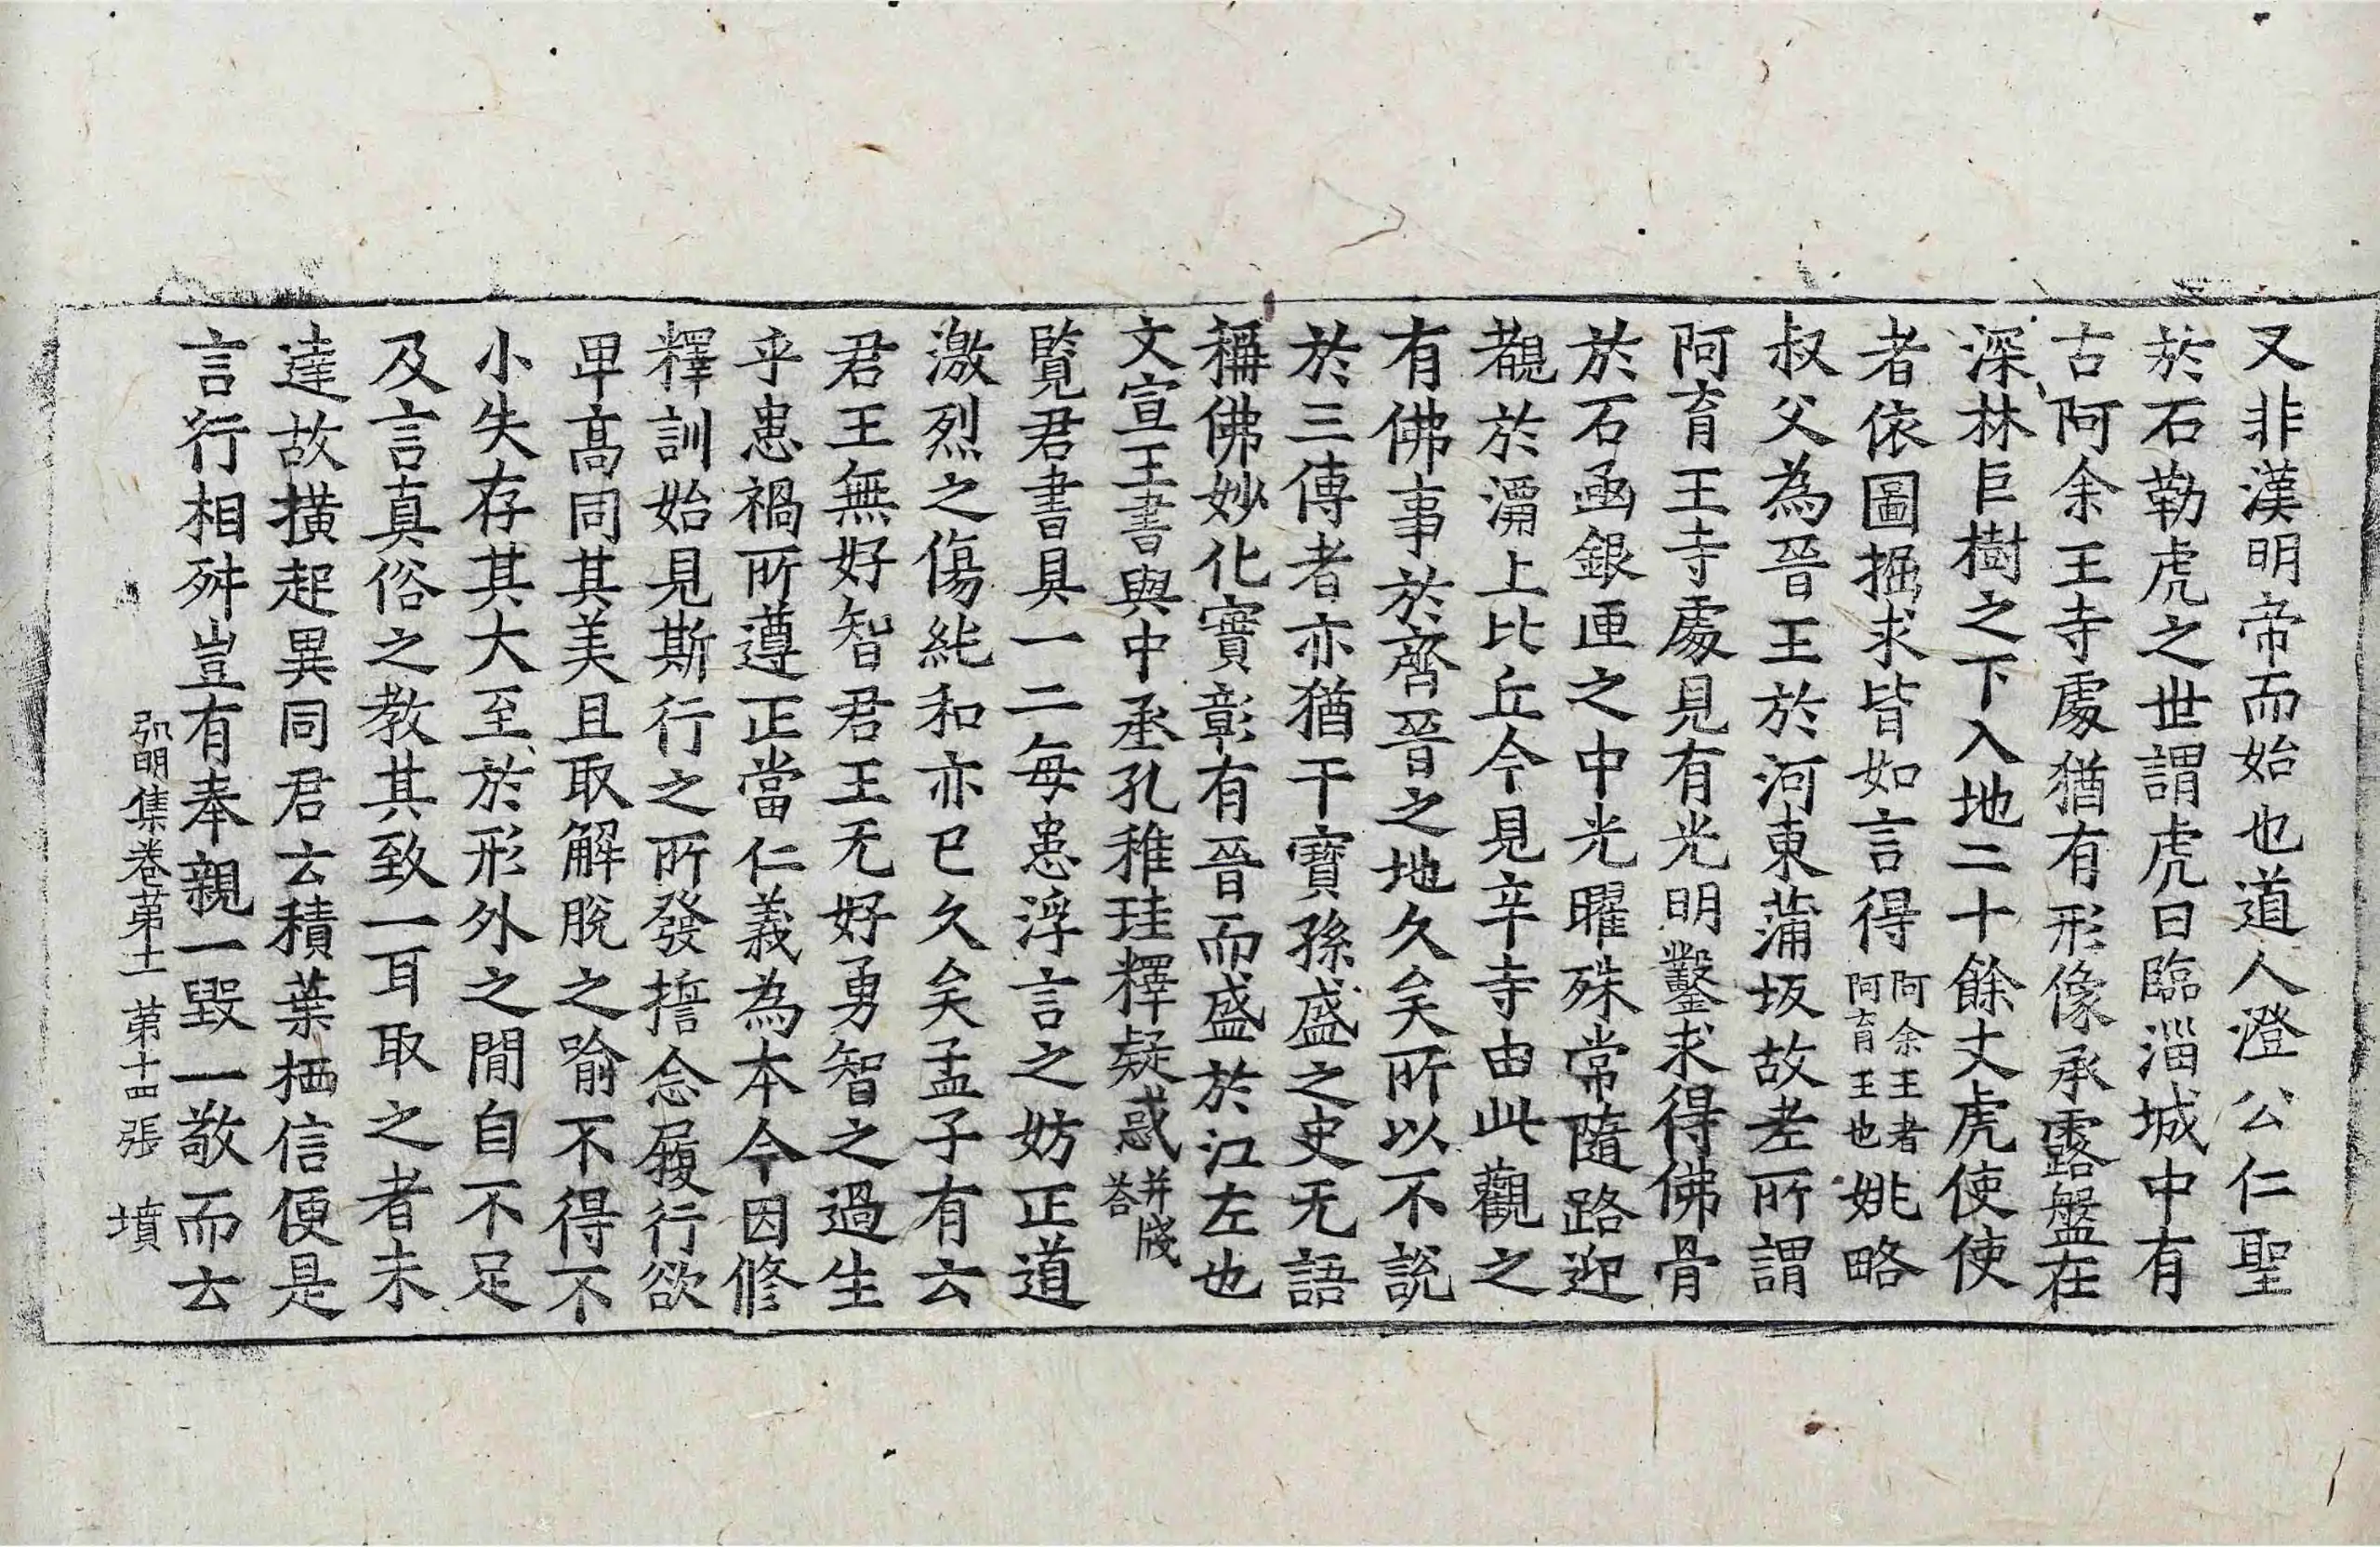 又非漢明帝而始也道人澄公仁聖
於石勒虎之世謂虎曰臨淄城中有
古阿余王寺處猶有形像承露盤在
深林巨樹之下入地二十餘丈虎使使
者依圖掘求皆如言得阿余王者阿育王也姚略
叔父為晉王於河東蒲坂故老所謂
阿育王寺處見有光明鑿求得佛骨
於石函銀匣之中光曜殊常隨路迎
覩於灞上比丘今見辛寺由此觀之
有佛事於齊晉之地久矣所以不說
於三傳者亦猶干寶孫盛之史无語
稱佛妙化實彰有晉而盛於江左也
文宣王書與中丞孔稚珪釋疑惑并牋答
覽君書具一二每患浮言之妨正道
激烈之傷純和亦已久矣孟子有云
君王無好智君王无好勇智之過生
乎患禍所遵正當仁義為本今因修
釋訓始見斯行之所發擔念履行欲
卑高同其美且取解脫之喻不得不
小失存其大至於形外之閒自不足
及言真俗之教其致一耳取之者未
達故橫起異同君云積葉栖信便是
言行相舛豈有奉親一毀一敬而云
弘明集卷苐十一 第十四張 墳